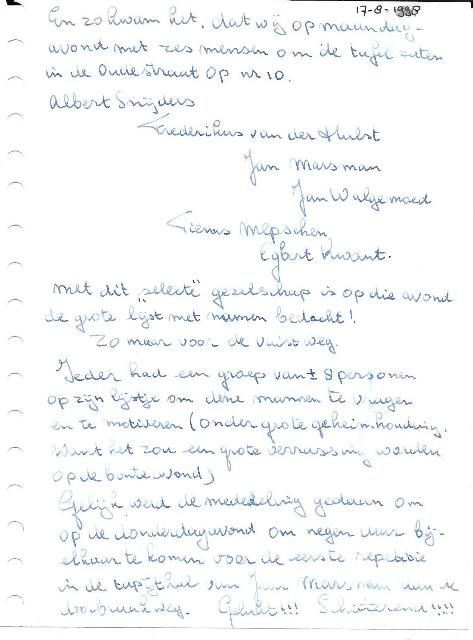 17-8-1998
En zo kwam het, dat wij op maandag-
avond met zes mensen om de tafel zaten
in de Oudestraat op nr 10.
Albert Snijders
Frederikus van der Hulst
Jan Marsman
Jan Walgemoed
Tienus Mepschen
Egbert Kwant.
Met dit "selecte" gezelschap is op die avond
de grote lijst met namen bedacht!
Zo maar voor de vuist weg.
Ieder had een groep van ± 8 personen
op zijn lijstje om deze mannen te vragen
en te motiveren (onder grote geheimhouding.
Want het zou een grote verrassing worden
op de bonte avond)
Gelijk werd de mededeling gedaan om
op de donderdagavond om negen uur bij-
elkaar te komen voor de eerste repetitie
in de tapijthal van Jan Marsman aan de
weg. Gehaat!!! Schitterend!!!!